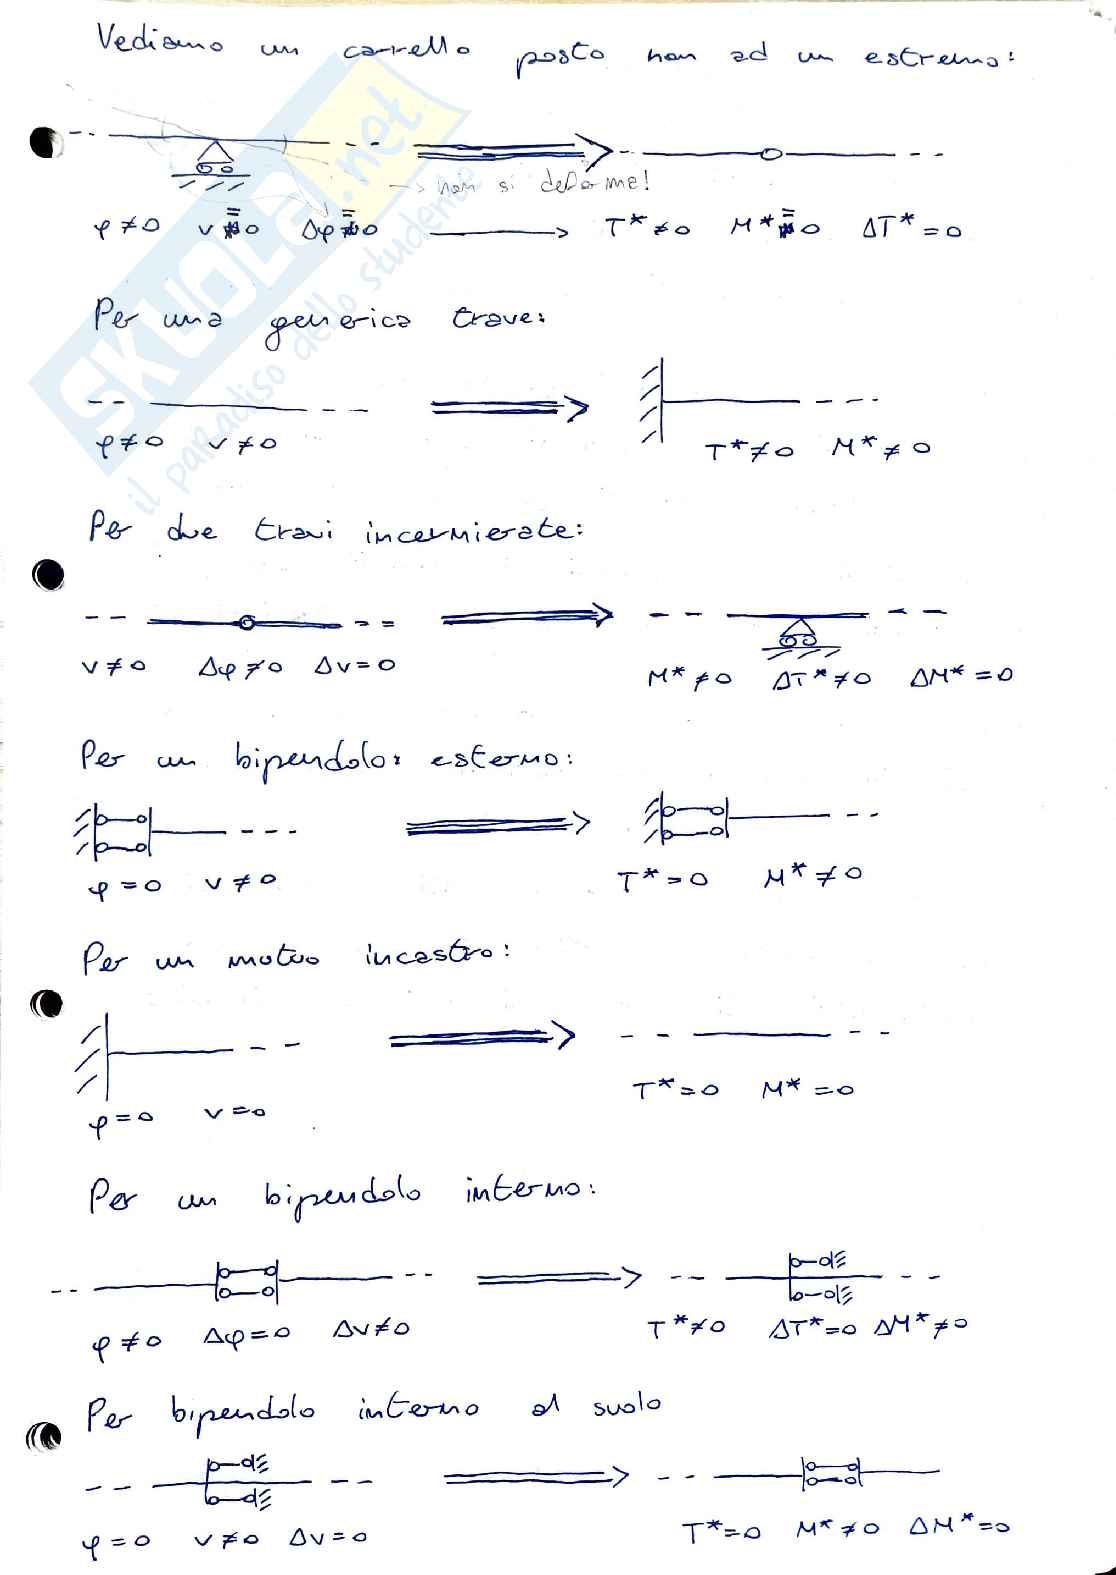 Vediamo un carrello posto non ad un estremo:
→ non si deforma!
φ≠0 v=0 Δφ=0 → T*≠0 M*=0 ΔT*=0
Per una generica trave:
φ≠0 v≠0 T*≠0 M*≠0
Per due travi incernierate:
v≠0 Δφ≠0 Δv=0 M*≠0 ΔT*≠0 ΔM*=0
Per un bipendolo esterno:
φ=0 v≠0 T*=0 M*≠0
Per un mutuo incastro:
φ=0 v=0 T*=0 M*=0
Per un bipendolo interno:
φ≠0 Δφ=0 Δv≠0 T*≠0 ΔT*=0 ΔM*≠0
Per bipendolo interno al suolo
φ=0 v≠0 Δv=0 T*=0 M*≠0 ΔM*=0
SKUOLA.net
il paradiso dello studente